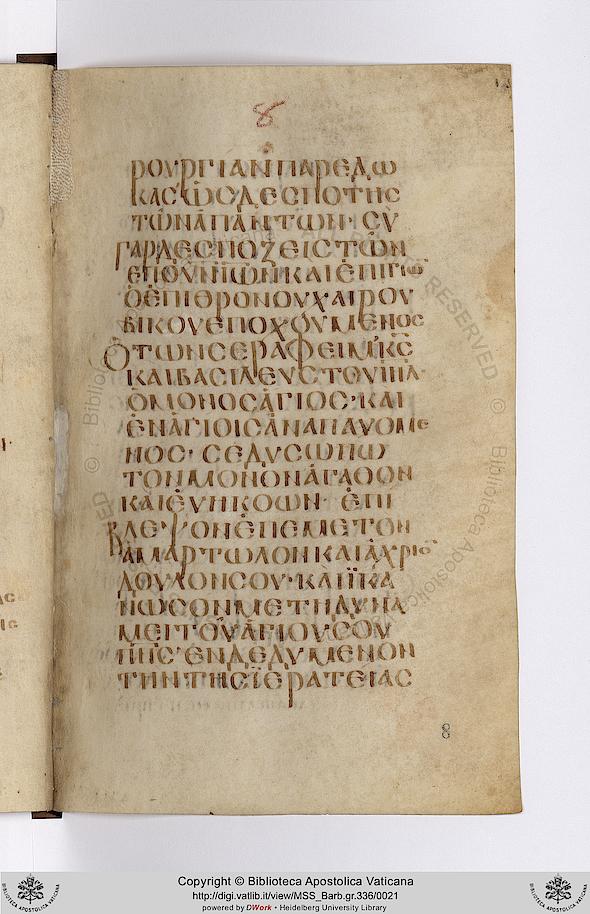 8
ΡΟΥΡΓΙΑΝ ΠΑΡΕΔΩ
ΚΑΣ ὡΣ ΔΕΣΠΟΤΗΣ
ΤῶΝ ἁΠΆΝΤΩΝ· ΣῪ
ΓΑΡ ΔΕΣΠΟΖΕΙΣ ΤῶΝ
ΕΠΟΥΝΙΩΝ ΚΑΙ ἐΠΙΓΙῶ
Ὁ ἐΠΙ ΘΡΟΝΟΥ ΧΑΙΡΟΥ
ΒΙΚΟΥ ΕΠΟΧΟΥΜΕΝΟΣ
Ὁ ΤΩΝ ΣΕΡΑΦΕΙΜ Κ̅Σ̅
ΚΑΙ ΒΑΣΙΛΕΥΣ ΤΟΥ ΙΗΛ·
Ὁ ΜΟΝΟΣ ἅΓΙΟΣ· ΚΑΙ
ἐΝ ἁΓΙΟΙΣ ἀΝΑΠΑΥΟΜΕ
ΝΟΣ· ΣΕ ΔΥΣΩΠῶ
ΤΟΝ ΜΟΝΟΝ ἀΓΑΘΟΝ
ΚΑΙ ΕΥΗΚΟΩΝ· ἐΠΙ
ΒΛΕΨΟΝ ἐΠ ΕΜΕ ΤΟΝ
ἁΜΑΡΤΩΛΟΝ ΚΑΙ ἀΧΡΙΟ
ΔΟΥΛΟΝ ΣΟΥ· ΚΑΙ ΪΚΑ
ΝΩΣΟΝ ΜΕ ΤΗ ΔΥΝΑ
ΜΕΙ ΤΟΥ ἁΓΙΟΥ ΣΟΥ
Π̅Ν̅Σ̅· ἐΝΔΕΔΥΜΕΝΟΝ
ΤΗΝ ΤΗΣ ΪΕΡΑΤΕΙΑΣ
8
Copyright © Biblioteca Apostolica Vaticana
http://digi.vatlib.it/view/MSS_Barb.gr.336/0021
powered by DWork • Heidelberg University Library